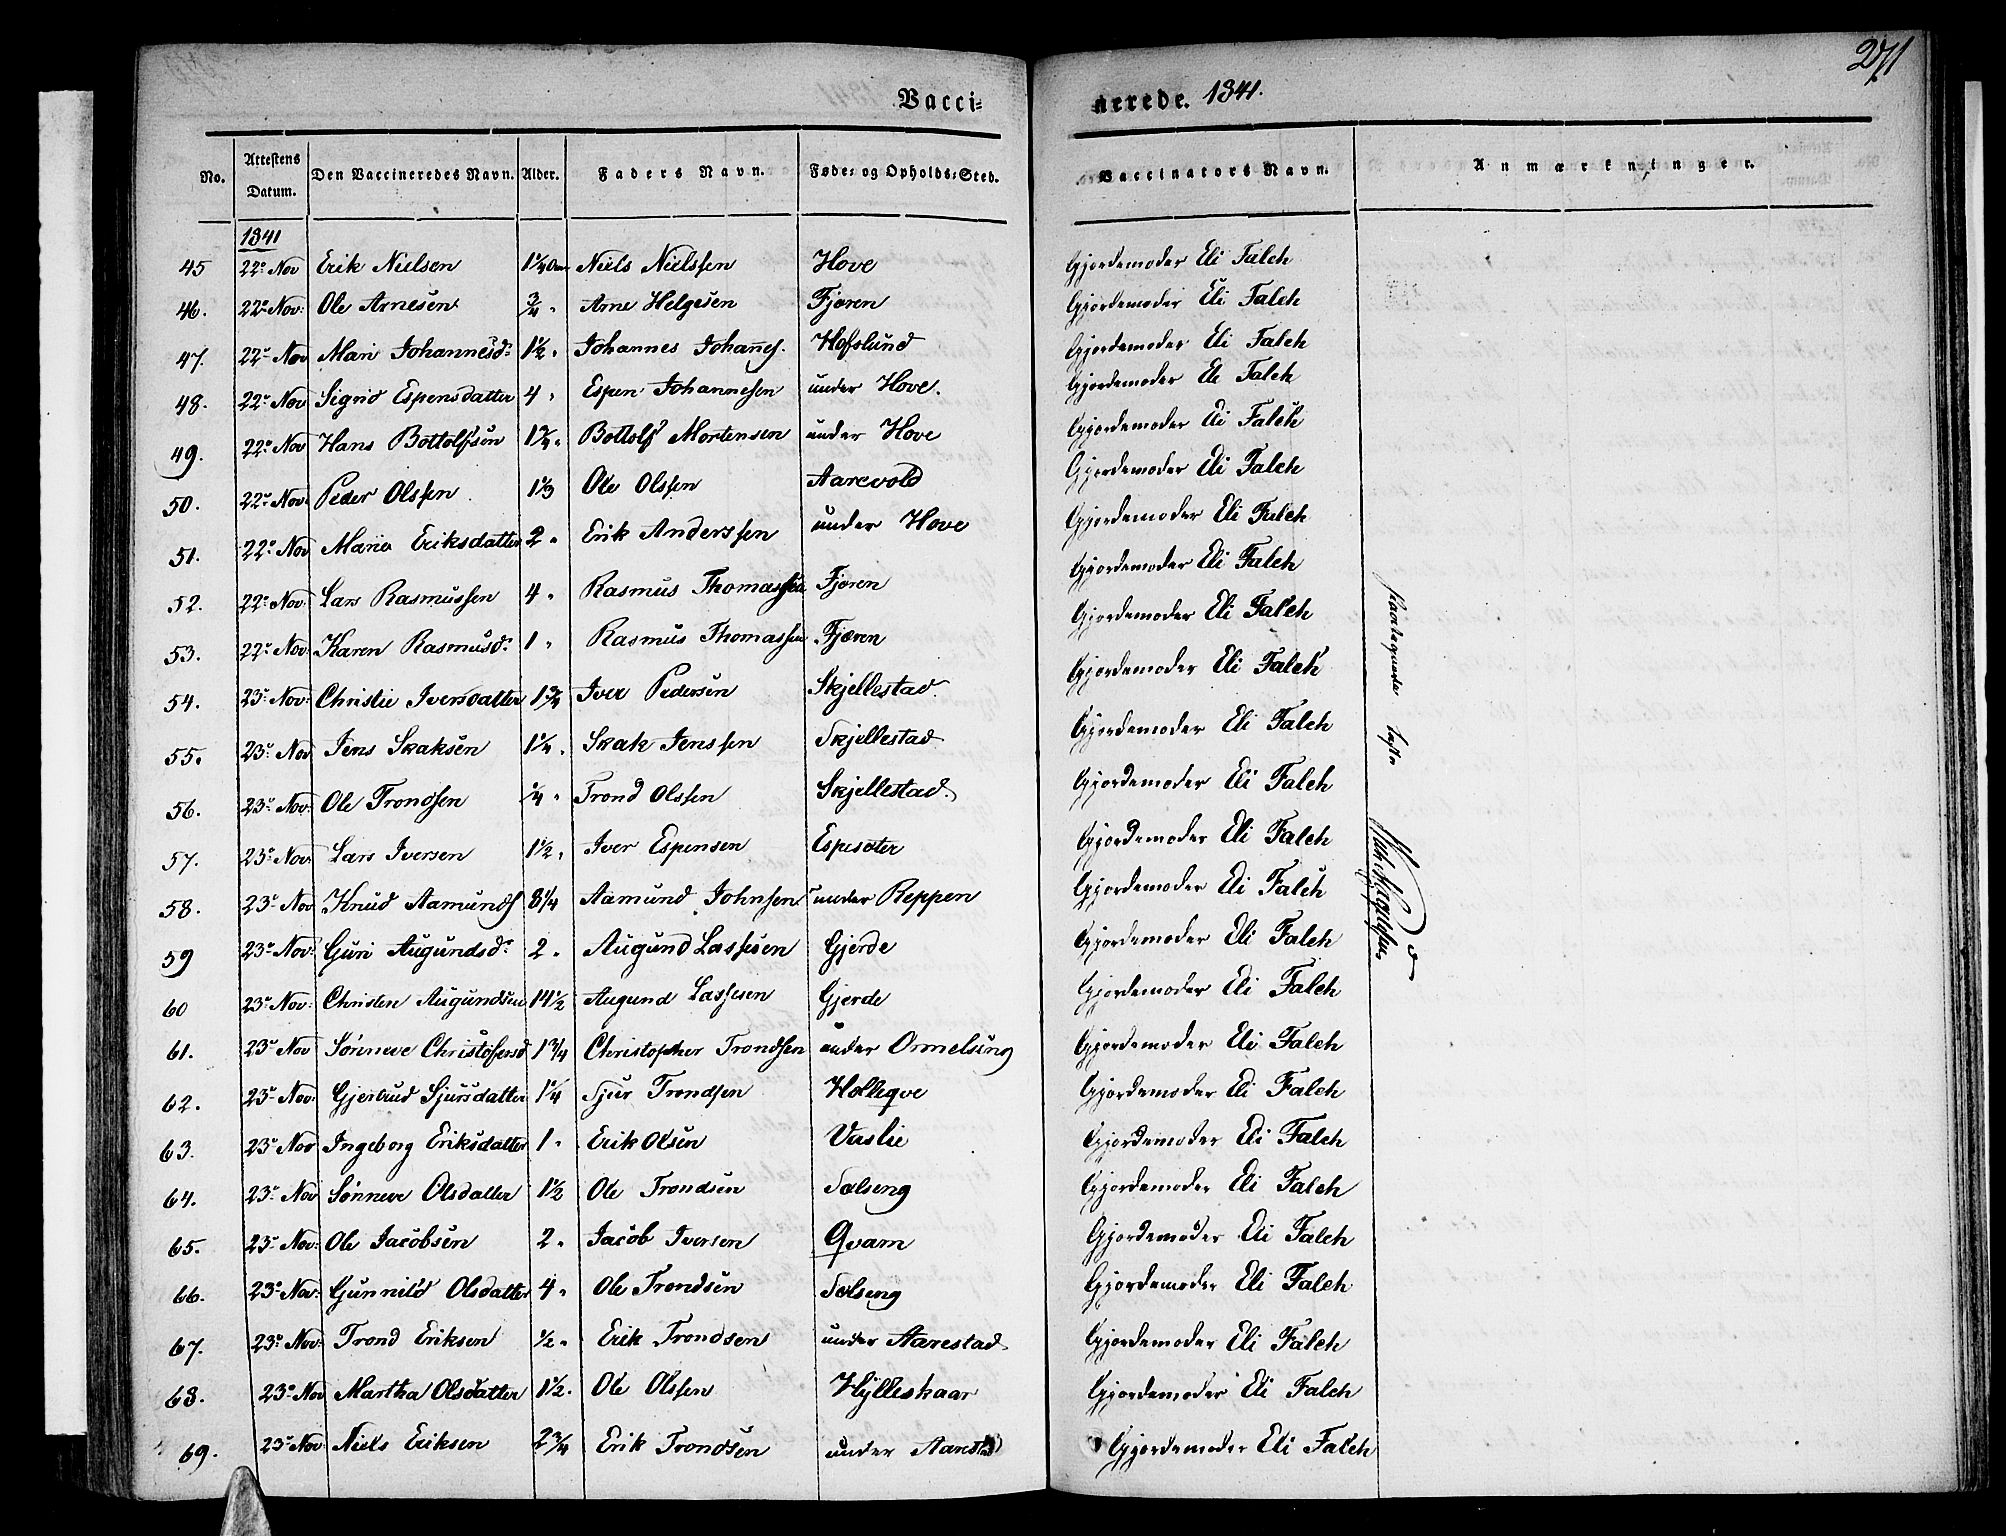 271
Vacci= nerede. 1841.
No. Attestens Datum. Den Vaccineredes Navn. Alder. Faders Navn. Føde= og Opholds=Sted. Vaccinators Navn. Anmærkninger.
1841
45 22de Nov Erik Nielsen Niels Nielssen Hove Gjordemoder Eli Falch
46. 22de Nov: Ole Arnesen 3/4 " Arne Helgesen Fjæren Gjordemoder Eli Falch
47. 22de Nov Mari Johannesd: 1 1/2 " Johannes Johannes. Hofslund Gjordemoder Eli Falch
48. 22de Nov Sigrid Espensdatter 4 " Espen Johannesen under Hove. Gjordemoder Eli Falch
49. 22de Nov Hans Bottolfsøn Bottolf Mortensen under Hove Gjordemoder Eli Falch
50. 22de Nov: Peder Olssen 1 1/3 Ole Olssen Aarevold Gjordemoder Eli Falch
51. 22de Nov Maria Eriksdatter 2 " Erik Anderssen under Hove Gjordemoder Eli Falch
52. 22de Nov: Lars Rasmussen 4 " Rasmus Thomassen Fjæren Gjordemoder Eli Falch
53. 22de Nov: Karen Rasmusd: 1 " Rasmus Thomassen Fjæren Gjordemoder Eli Falch
54. 23de Nov: Christie Iversdatter 1 3/4 Iver Pedersen Skjellestad. Gjordemoder Eli Falch
55. 23de Nov Jens Skaksen 1 1/4 " Skak Jenssen Skjellestad Gjordemoder Eli Falch
56. 23de Nov: Ole Trondsen 1/4 " Trond Olssen Skjellestad. Gjordemoder Eli Falch
57. 23de Nov: Lars Iversen 1 1/2 " Iver Espensen Espesæter Gjordemoder Eli Falch
58. 23de Nov Knud Aamunds 8 1/4 Aamund Johnsen under Reppen Gjordemoder Eli Falch
59 23de Nov: Guri Augundsd: 2 " Augund Lassesen Gjerde Gjordemoder Eli Falch
60 23de Nov: Christen Augundsen Augund Lassesen Gjerde Gjordemoder Eli Falch
61. 23de Nov Sønneve Christofersd 1 3/4 Christopher Trondsen under Ormelsing Gjordemoder Eli Falch
62. 23de Nov: Gjertrud Sjursdatter 1 1/4 Sjur Trondsen Holleqve Gjordemoder Eli Falch
63. 23de Nov Ingeborg Eriksdatter 1 " Erik Olsen Vaslie Gjordemoder Eli Falch
64. 23de Nov Sønneve Olsdatter 1 1/2 Ole Trondsen Sælseng Gjordemoder Eli Falch
65. 23de Nov: Ole Jacobsen 2 " Jacob Iversen Qvam Gjordemoder Eli Falch
66. 23de Nov: Gunnild Olsdatter 4 " Ole Trondsen Sælseng Gjordemoder Eli Falch
67. 23de Nov: Trond Eriksen 1/2 " Erik Trondsen under Aarestad Gjordemoder Eli Falch
68. 23de Nov Martha Olsdatter 1 1/2 " Ole Olssen Hylleskaar Gjordemoder Eli Falch
69. 23de Nov Niels Eriksen 2 3/4 Erik Trondsen under Aarestad Gjordemoder Eli Falch